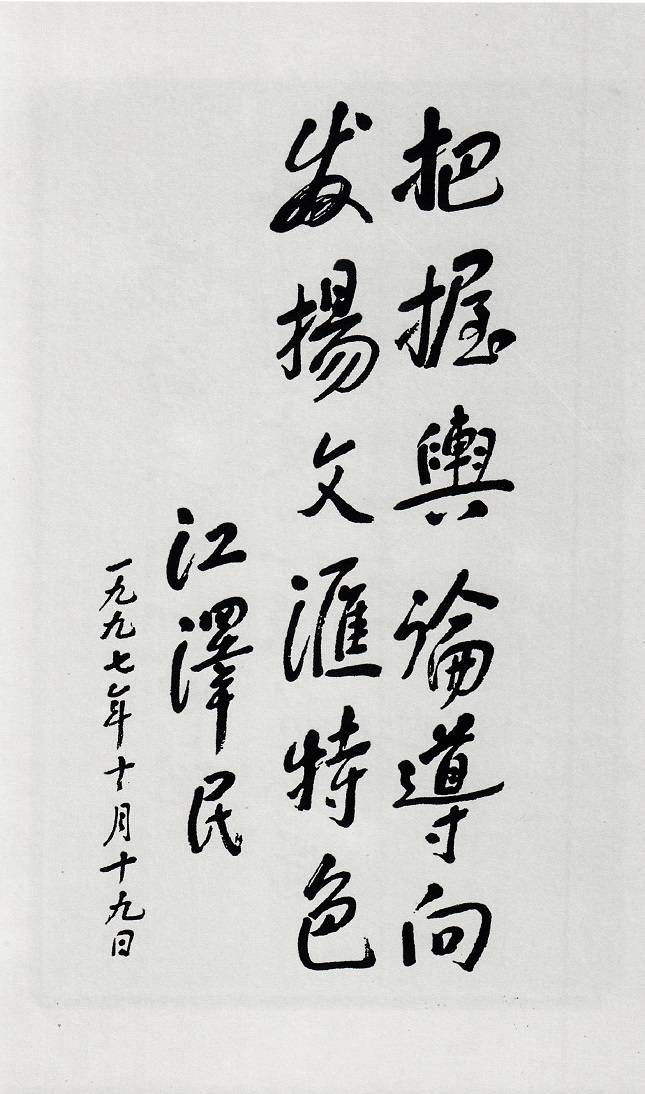 把握輿論導向
发揚文滙特色
江澤民
一九九七年十二月十九日